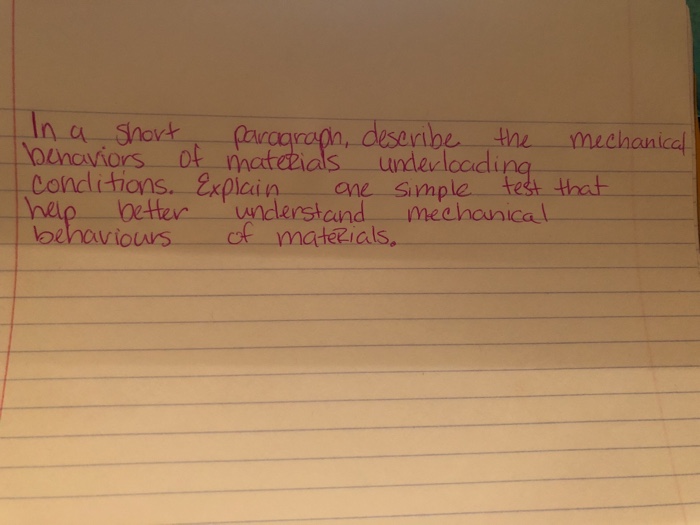 In a short paragraph, describe the mechanical
behaviors of materials underloading
conditions. Explain one simple test that
help better understand mechanical
behaviours of materials.